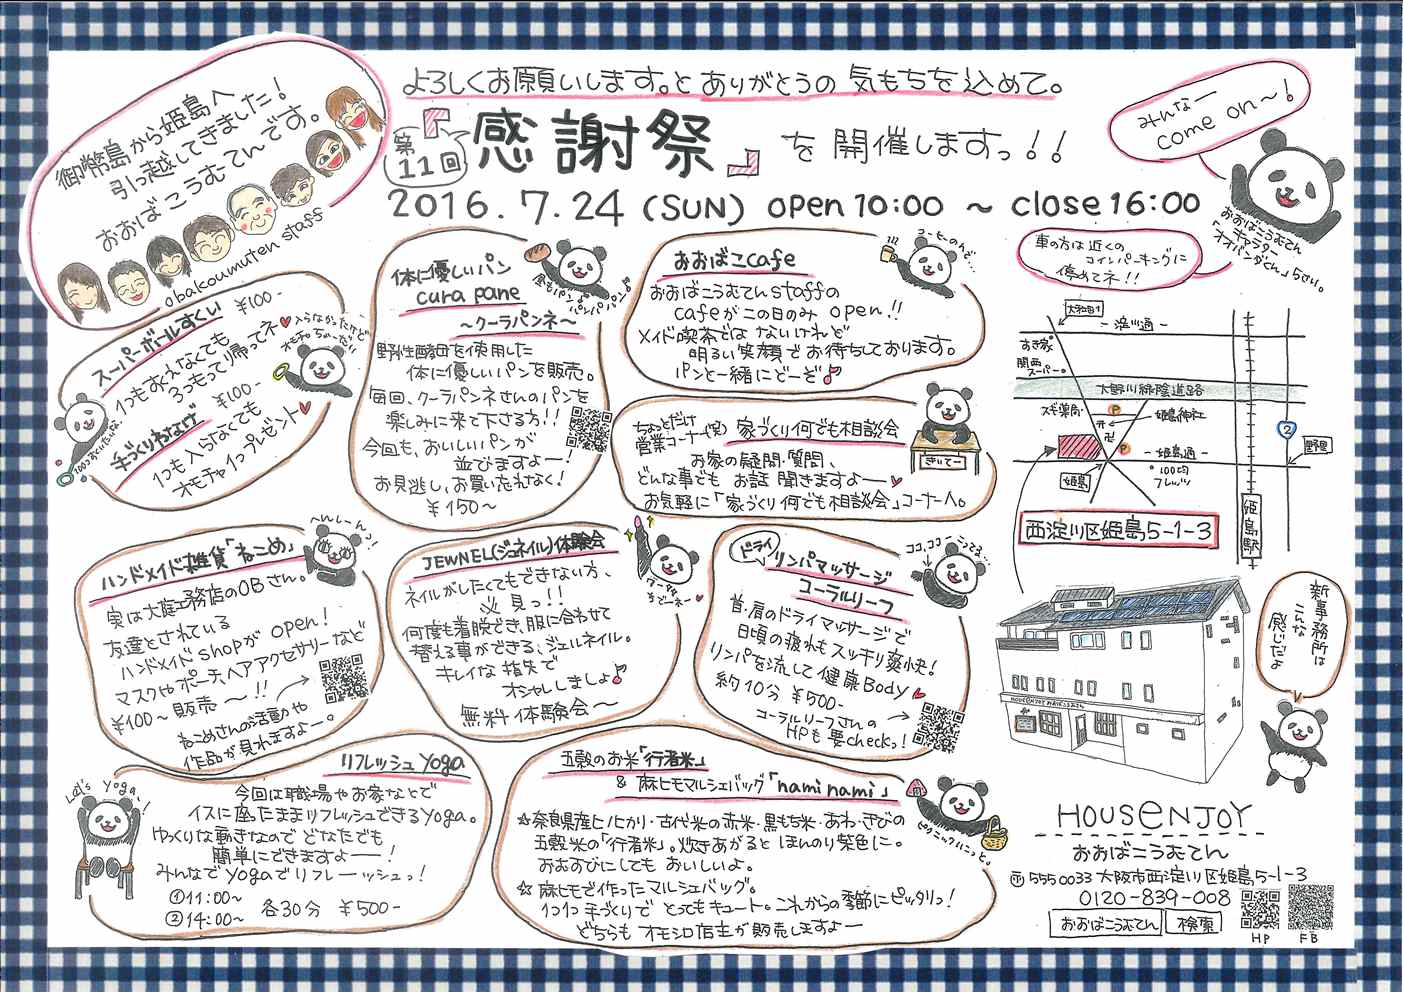 御幣島から姫島へ
引っ越してきました!
おおばこうむてんです。
obakoumuten staff
よろしくお願いします。と ありがとうの 気もちを込めて。
第11回
『感謝祭』を開催しますっ!!
2016.7.24(SUN) open 10:00 ~ close 16:00
みんなー
come on~!
おおばこうむてん
キャラクター
「オオパンダくん」らさい。
車の方は近くの
コインパーキングに
停めてネ!!
スーパーボールすくい ¥100-
1つもすくえなくても
3つもって帰ってネ♥
100コすくいたいな!
手づくりわなげ ¥100-
1つも入らなくても
オモチャ1つプレゼント♥
入らなかったけど
オモチャもらったー!!
体に優しいパン
cura pane
~クーラパンネ~
野性酵母を使用した
体に優しいパンを販売。
毎回、クーラパンネさんのパンを
楽しみに来て下さる方!!
今回も、おいしいパンが
並びますよー!
お見逃し、お買い忘れなく!
¥150~
おおばこcafe
コーヒーのんで…
おおばこうむてんstaffの
cafeがこの日のみ open!!
メイド喫茶では ないけれど
明るい笑顔でお待ちしております。
パンと一緒にどーぞ♪
ちょっとだけ
営業コーナー(笑) 家づくり何でも相談会
お家の疑問・質問、
どんな事でも お話 聞きますよー♥
お気軽に「家づくり何でも相談会」コーナーへ。
きいてー
大和田1
淀川通
すき家
関西スーパー
大野川緑陰道路
スギ薬局
P
姫島神社
卍
P
姫島通
100均
フレッツ
姫島
2
野里
姫島駅
西淀川区姫島5-1-3
ハンドメイド雑貨「ねこめ」
へんしーんっ!
実は大庭工務店のOBさん。
友達とされている
ハンドメイドshopが open!
マスクやポーチ、ヘアアクセサリーなど
¥100~ 販売~!!
ねこめさんの活動や
作品が見れますよー。
JEWNEL(ジュネイル)体験会
ネイルがしたくてもできない方、
必見っ!!
何度も着脱でき、服に合わせて
替える事ができる、ジュエルネイル。
キレイな指先で
オシャレしましょ♪
無料体験会~
ドライ
リンパマッサージ
コーラルリーフ
ココ、ココ
首・肩のドライマッサージで
日頃の疲れもスッキリ爽快!
リンパを流して健康Body♥
約10分 ¥500-
コーラルリーフさんの
HPも要checkっ!
新事務所は
こんな
感じだよ
HOUSENJOY MATERIAさん
リフレッシュ yoga
Let's yoga!!
今回は職場やお家などで
イスに座ったままリフレッシュできるyoga。
ゆっくりな動きなので どなたでも
簡単にできますよー!
みんなでyogaでリフレーッシュっ!
①11:00~
②14:00~ 各30分 ¥500-
五穀のお米「行者米」
& 麻ヒモマルシェバッグ「nami nami」
ピクニックにっと。
☆奈良県産ヒノヒカリ・古代米の赤米・黒もち米・あわ・きびの
五穀米の「行者米」。炊きあがると ほんのり紫色に。
おむすびにしても おいしいよ。
☆麻ヒモで作ったマルシェバッグ。
1つ1つ手づくりで とってもキュート。これからの季節にピッタリっ!
どちらも オモシロ店主が販売しますよー
HOUSENJOY
おおばこうむてん
〒555 0033 大阪市西淀川区姫島5-1-3
0120-839-008
おおばこうむてん 検索
HP FB